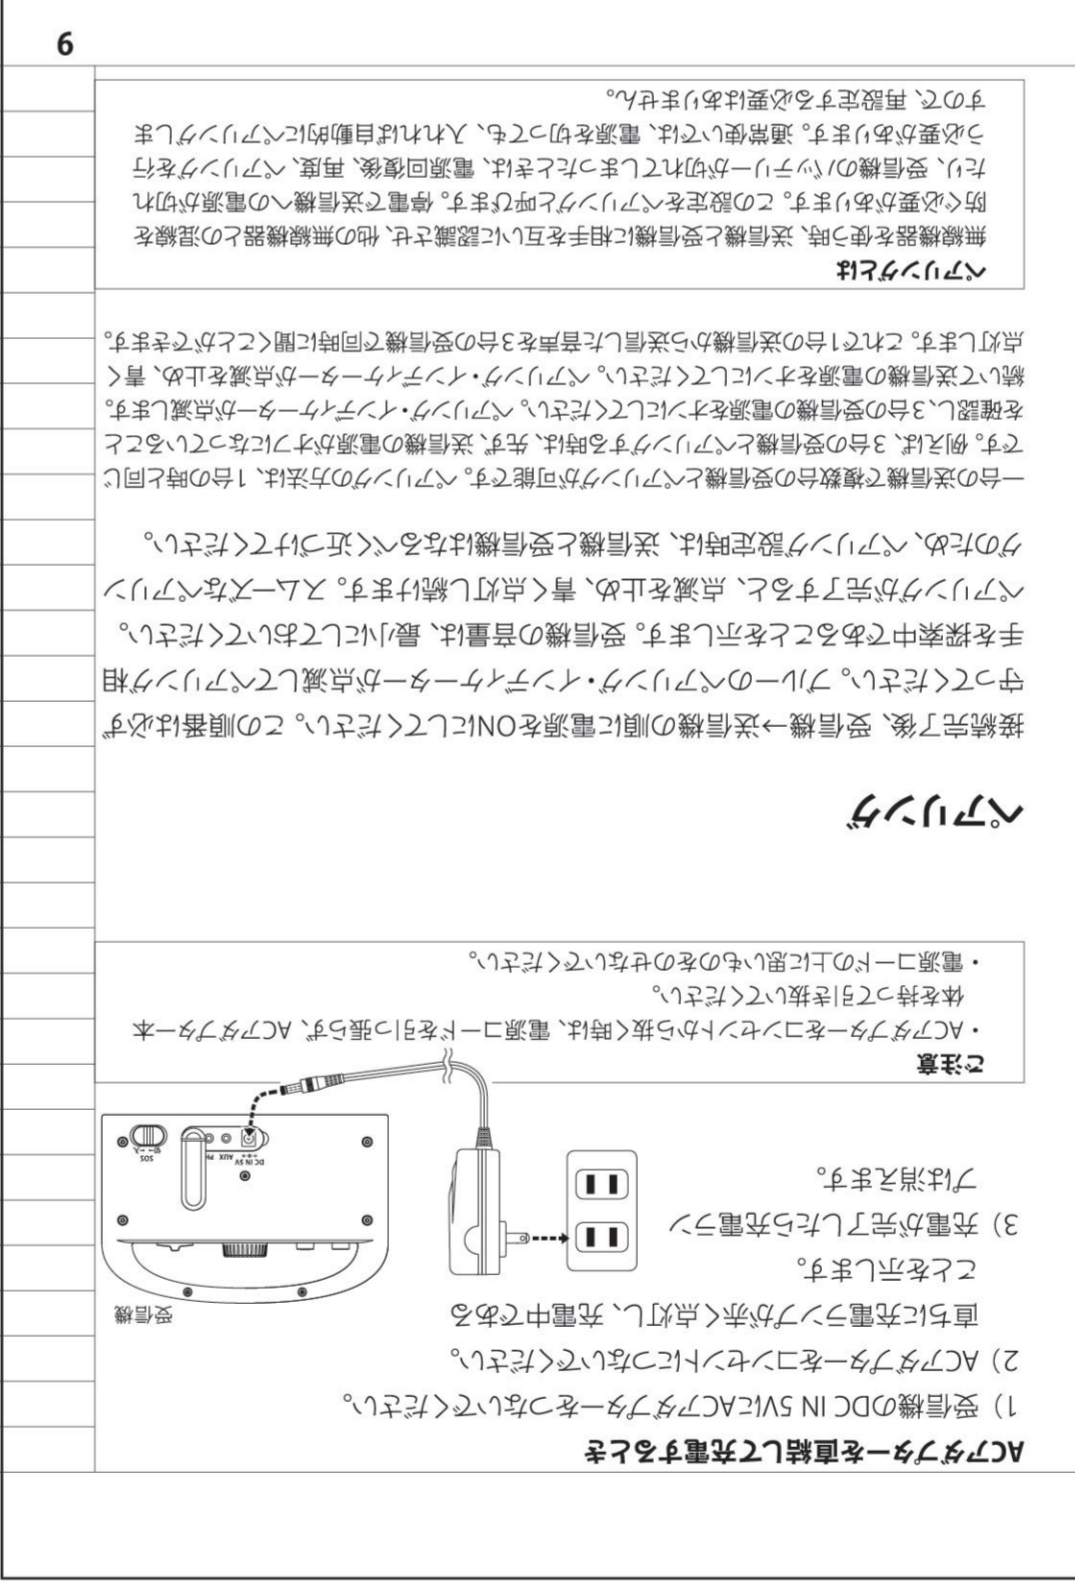 ACアダプターを直結して充電するとき
1）受信機のDC IN 5VにACアダプターをつないでください。
2）ACアダプターをコンセントにつないでください。
直ちに充電ランプが赤く点灯し、充電中である
ことを示します。
3）充電が完了したら充電ラン
プは消えます。
受信機
DC IN 5V AUX PH
SOS
ご注意
・ACアダプターをコンセントから抜く時は、電源コードを引っ張らず、ACアダプター本
体を持って引き抜いてください。
・電源コードの上に思いものをのせないでください。
ペアリング
接続完了後、受信機→送信機の順に電源をONにしてください。この順番は必ず
守ってください。ブルーのペアリング・インディケーターが点滅してペアリング相
手を探索中であることを示します。受信機の音量は、最小にしておいてください。
ペアリングが完了すると、点滅を止め、青く点灯し続けます。スムーズなペアリン
グのため、ペアリング設定時は、送信機と受信機はなるべく近づけてください。
一台の送信機で複数台の受信機とペアリングが可能です。ペアリングの方法は、1台の時と同じ
です。例えば、3台の受信機とペアリングする時は、先ず、送信機の電源がオフになっていること
を確認し、3台の受信機の電源をオンにしてください。ペアリング・インディケーターが点滅します。
続いて送信機の電源をオンにしてください。ペアリング・インディケーターが点滅を止め、青く
点灯します。これで1台の送信機から送信した音声を3台の受信機で同時に聞くことができます。
ペアリングとは
無線機器を使う時、送信機と受信機に相手を互いに認識させ、他の無線機器との混線を
防ぐ必要があります。この設定をペアリングと呼びます。停電で送信機への電源が切れ
たり、受信機のバッテリーが切れてしまったときは、電源回復後、再度、ペアリングを行
う必要があります。通常使いでは、電源を切っても、入れれば自動的にペアリングしま
すので、再設定する必要はありません。
9